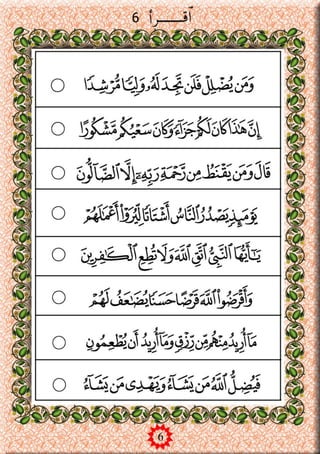 ٱقــــرأ 6
وَمَن يُضْلِلْ فَلَن تَجِدَ لَهُۥ وَلِيًّا مُّرْشِدًا
إِنَّ هَٰذَا كَانَ لَكُمْ جَزَآءً وَكَانَ سَعْيُكُم مَّشْكُورًا
قَالَ وَمَن يَقْنَطُ مِن رَّحْمَةِ رَبِّهِۦٓ إِلَّا ٱلضَّآلُّونَ
يَوْمَئِذٍ يَصْدُرُ ٱلنَّاسُ أَشْتَاتًا لِّيُرَوْا۟ أَعْمَٰلَهُمْ
يَٰٓأَيُّهَا ٱلنَّبِىُّ ٱتَّقِ ٱللَّهَ وَلَا تُطِعِ ٱلْكَٰفِرِينَ
وَأَقْرَضُوا۟ ٱللَّهَ قَرْضًا حَسَنًا يُضَٰعَفُ لَهُمْ
مَآ أُرِيدُ مِنْهُم مِّن رِّزْقٍ وَمَآ أُرِيدُ أَن يُطْعِمُونِ
فَيُضِلُّ ٱللَّهُ مَن يَشَآءُ وَيَهْدِى مَن يَشَآءُ
6